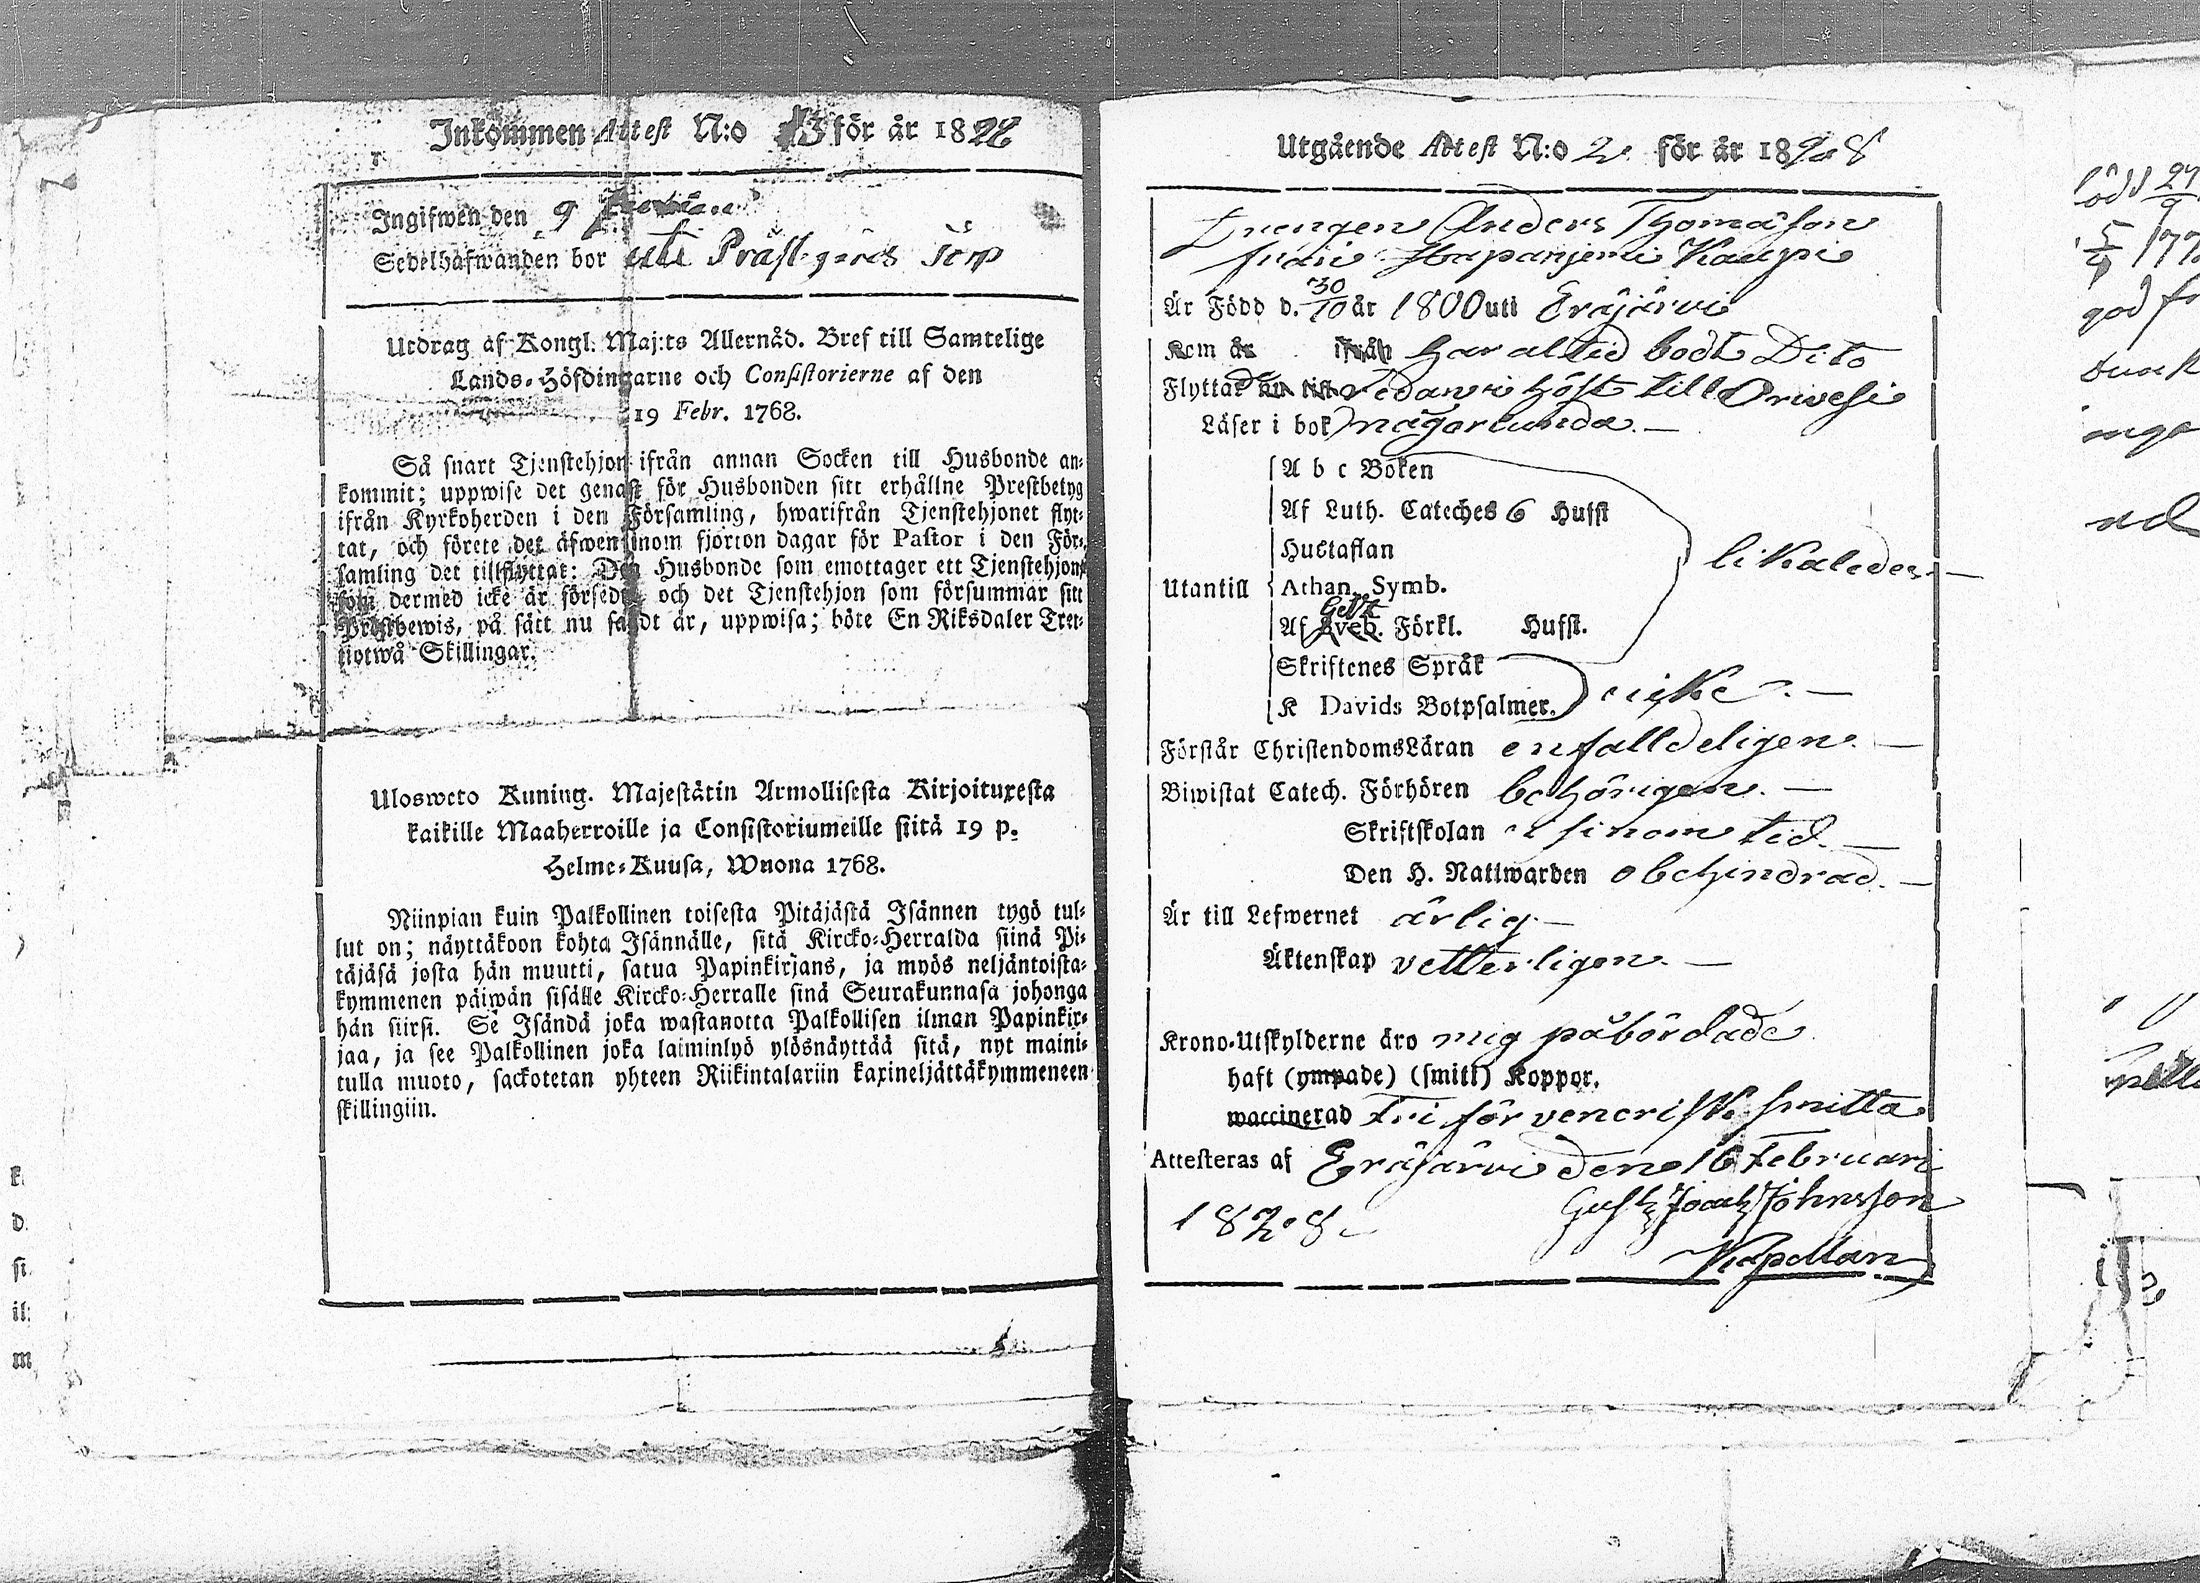 Inkommen Attest N:o 13 för år 1828
Ingifwen den 9
Sedelhafwanden bor uti Prästgårds Torp
Utdrag af Kongl. Maj:ts Allernåd. Bref till Samtelige
Lands-Höfdingarne och Consistorierne af den
19 Febr. 1768.
Så snart Tjenstehjon ifrån annan Socken till Husbonde an-
kommit; uppwise det genast för Husbonden sitt erhållne Prestbetyg
ifrån Kyrkoherden i den Församling, hwarifrån Tjenstehjonet flyt-
tat, och förete det äfwen inom fjorton dagar för Pastor i den För-
samling det tillflyttat: Den Husbonde som emottager ett Tjenstehjon,
som dermed icke är försedt, och det Tjenstehjon som försummar sitt
Prestbewis, på sätt nu sagdt är, uppwisa; böte En Riksdaler Tret-
tiotwå Skillingar.
Ulosweto Kuning. Majestätin Armollisesta Kirjoituxesta
kaikille Maaherroille ja Consistoriumeille siitä 19 p.
Helme-Kuusa, Wuona 1768.
Niinpian kuin Palkollinen toisesta Pitäjästä Isännen tygö tul-
lut on; näyttäkoon kohta Isännälle, sitä Kircko-Herralda siinä Pi-
täjäsä josta hän muutti, satua Papinkirjans, ja myös neljäntoista-
kymmenen päiwän sisälle Kircko-Herralle sinä Seurakunnasa johonga
hän siirsi. Se Isändä joka wastanotta Palkollisen ilman Papinkir-
jaa, ja see Palkollinen joka laiminlyö ylösnäyttää sitä, nyt maini-
tulla muoto, sackotetan yhteen Riikintalariin kaxineljättäkymmeneen
skillingiin.
Utgående Attest N:o 2 för år 1828
Drengen Anders Thomasson
från Haapaniemi Kaupi
Är Född d. 30/10 år 1800 uti Eräjärvi
Kom år ifrån har altid bodt Dito
Flyttade nu till redan i höst till Orivesi
Läser i bok någorlunda.
A b c Boken
Af Luth. Cateches 6 Hufst
Hustaflan
likaledes.
Utantill Athan. Symb.
Af Sveb. Förkl. Hufst.
Skriftenes Språk
K Davids Botpsalmer. icke.
Förstår ChristendomsLäran enfalldeligen.
Biwistat Catech. Förhören behörigen.
Skriftskolan i sinom tid.
Den H. Nattwarden obehindrad.
Är till Lefwernet ärlig
Äktenskap vetterligen
Krono-Utskylderne äro mig påbördade
haft (ympade) (smitt) Koppor.
waccinerad fri för venerisk smitta
Attesteras af Eräjärvi den 16 Februari
1828
Gust. Joach. Johnsson
Kapellan